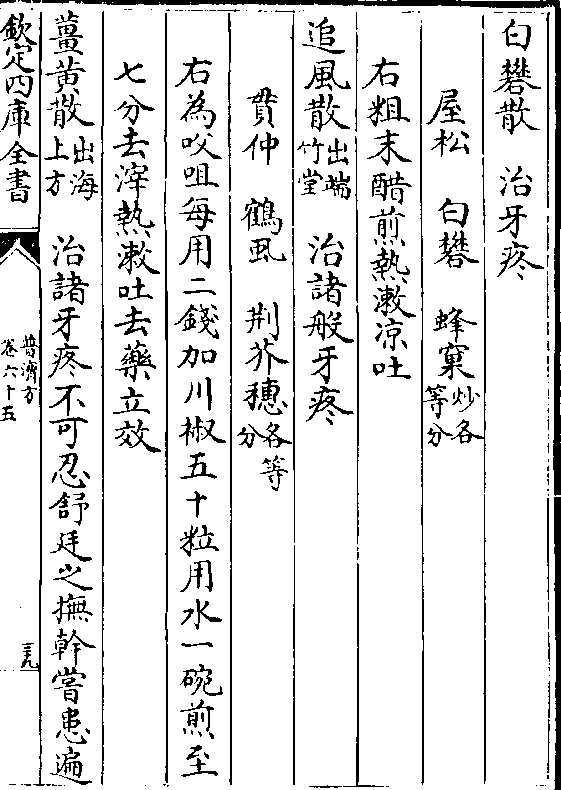 白礬散 治牙疼
屋松 白礬 蜂窠炒各等分
右粗末醋煎熱漱凉吐
追風散出端竹堂 治諸般牙疼
貫仲 鶴虱 荆芥穗各等分
右為㕮咀每用二錢加川椒五十粒用水一碗煎至
七分去滓熱漱吐去藥立效
薑黄散出海上方 治諸牙疼不可忍舒廷之撫幹嘗患遍
欽定四庫全書
普濟方
卷六十五